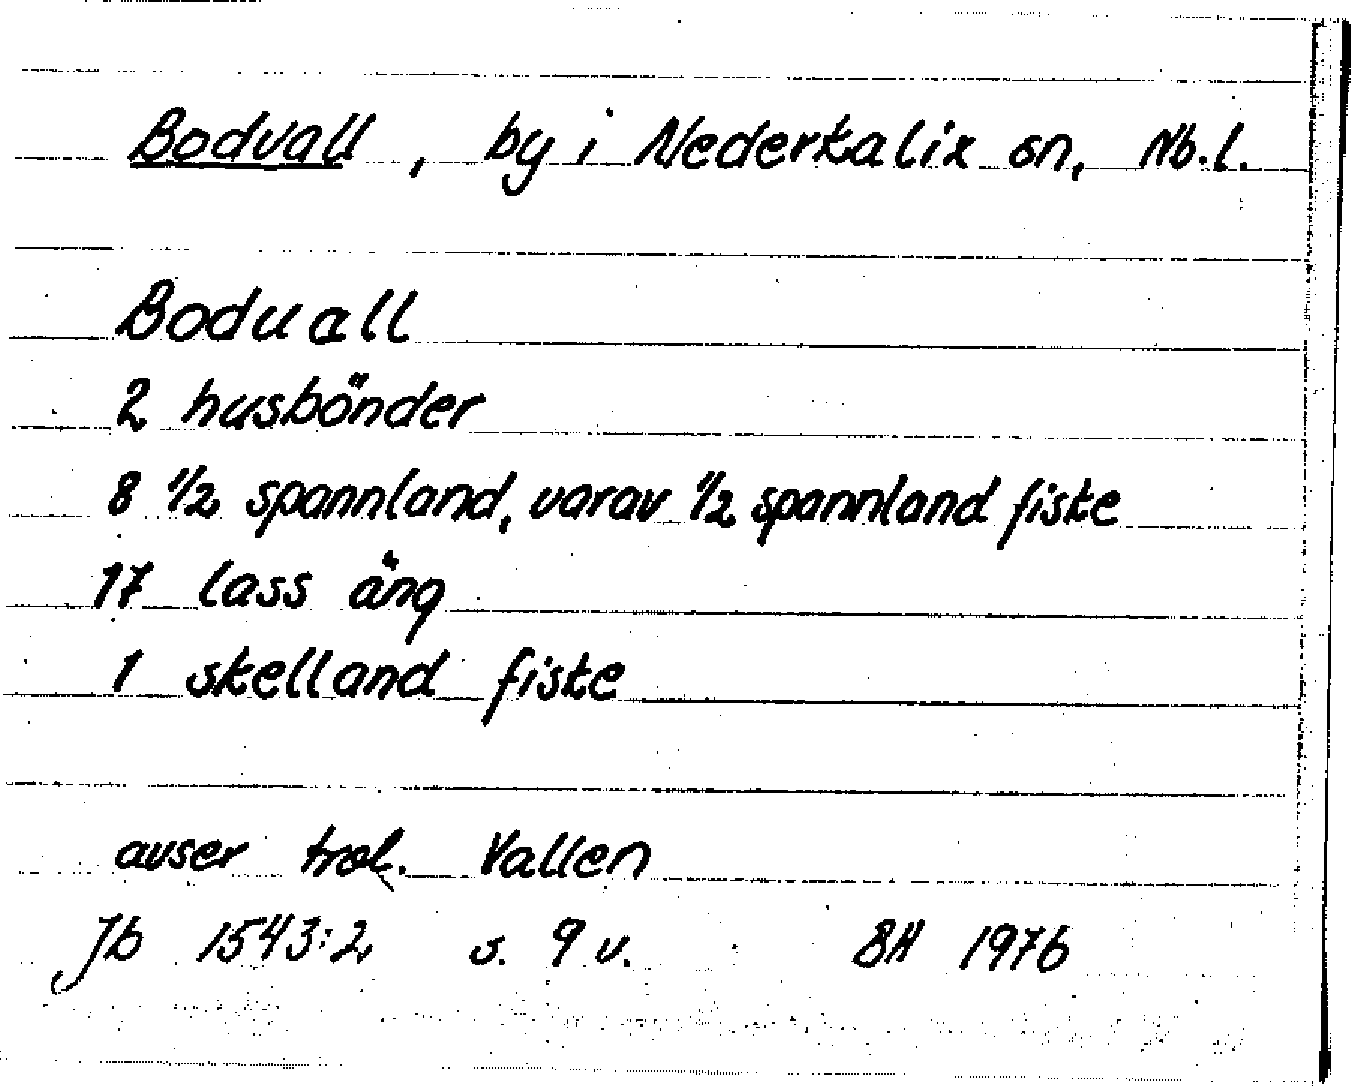 Bodvall, by i Nederkalix sn, Nb.l.
Boduall
2 husbönder
8 1/2 spannland, varav 1/2 spannland fiske
17 lass äng
1 skelland fiske
avser trol. Vallen
Jb 1543:2 s. 9 v. BH 1976